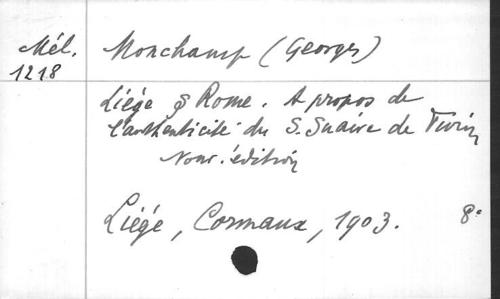 Mél.
1218
Monchamp (Georges)
Liége & Rome. A propos de
l'authenticité du S. Suaire de Turin
Nouv. édition
Liége, Cormaux, 1903. 8°